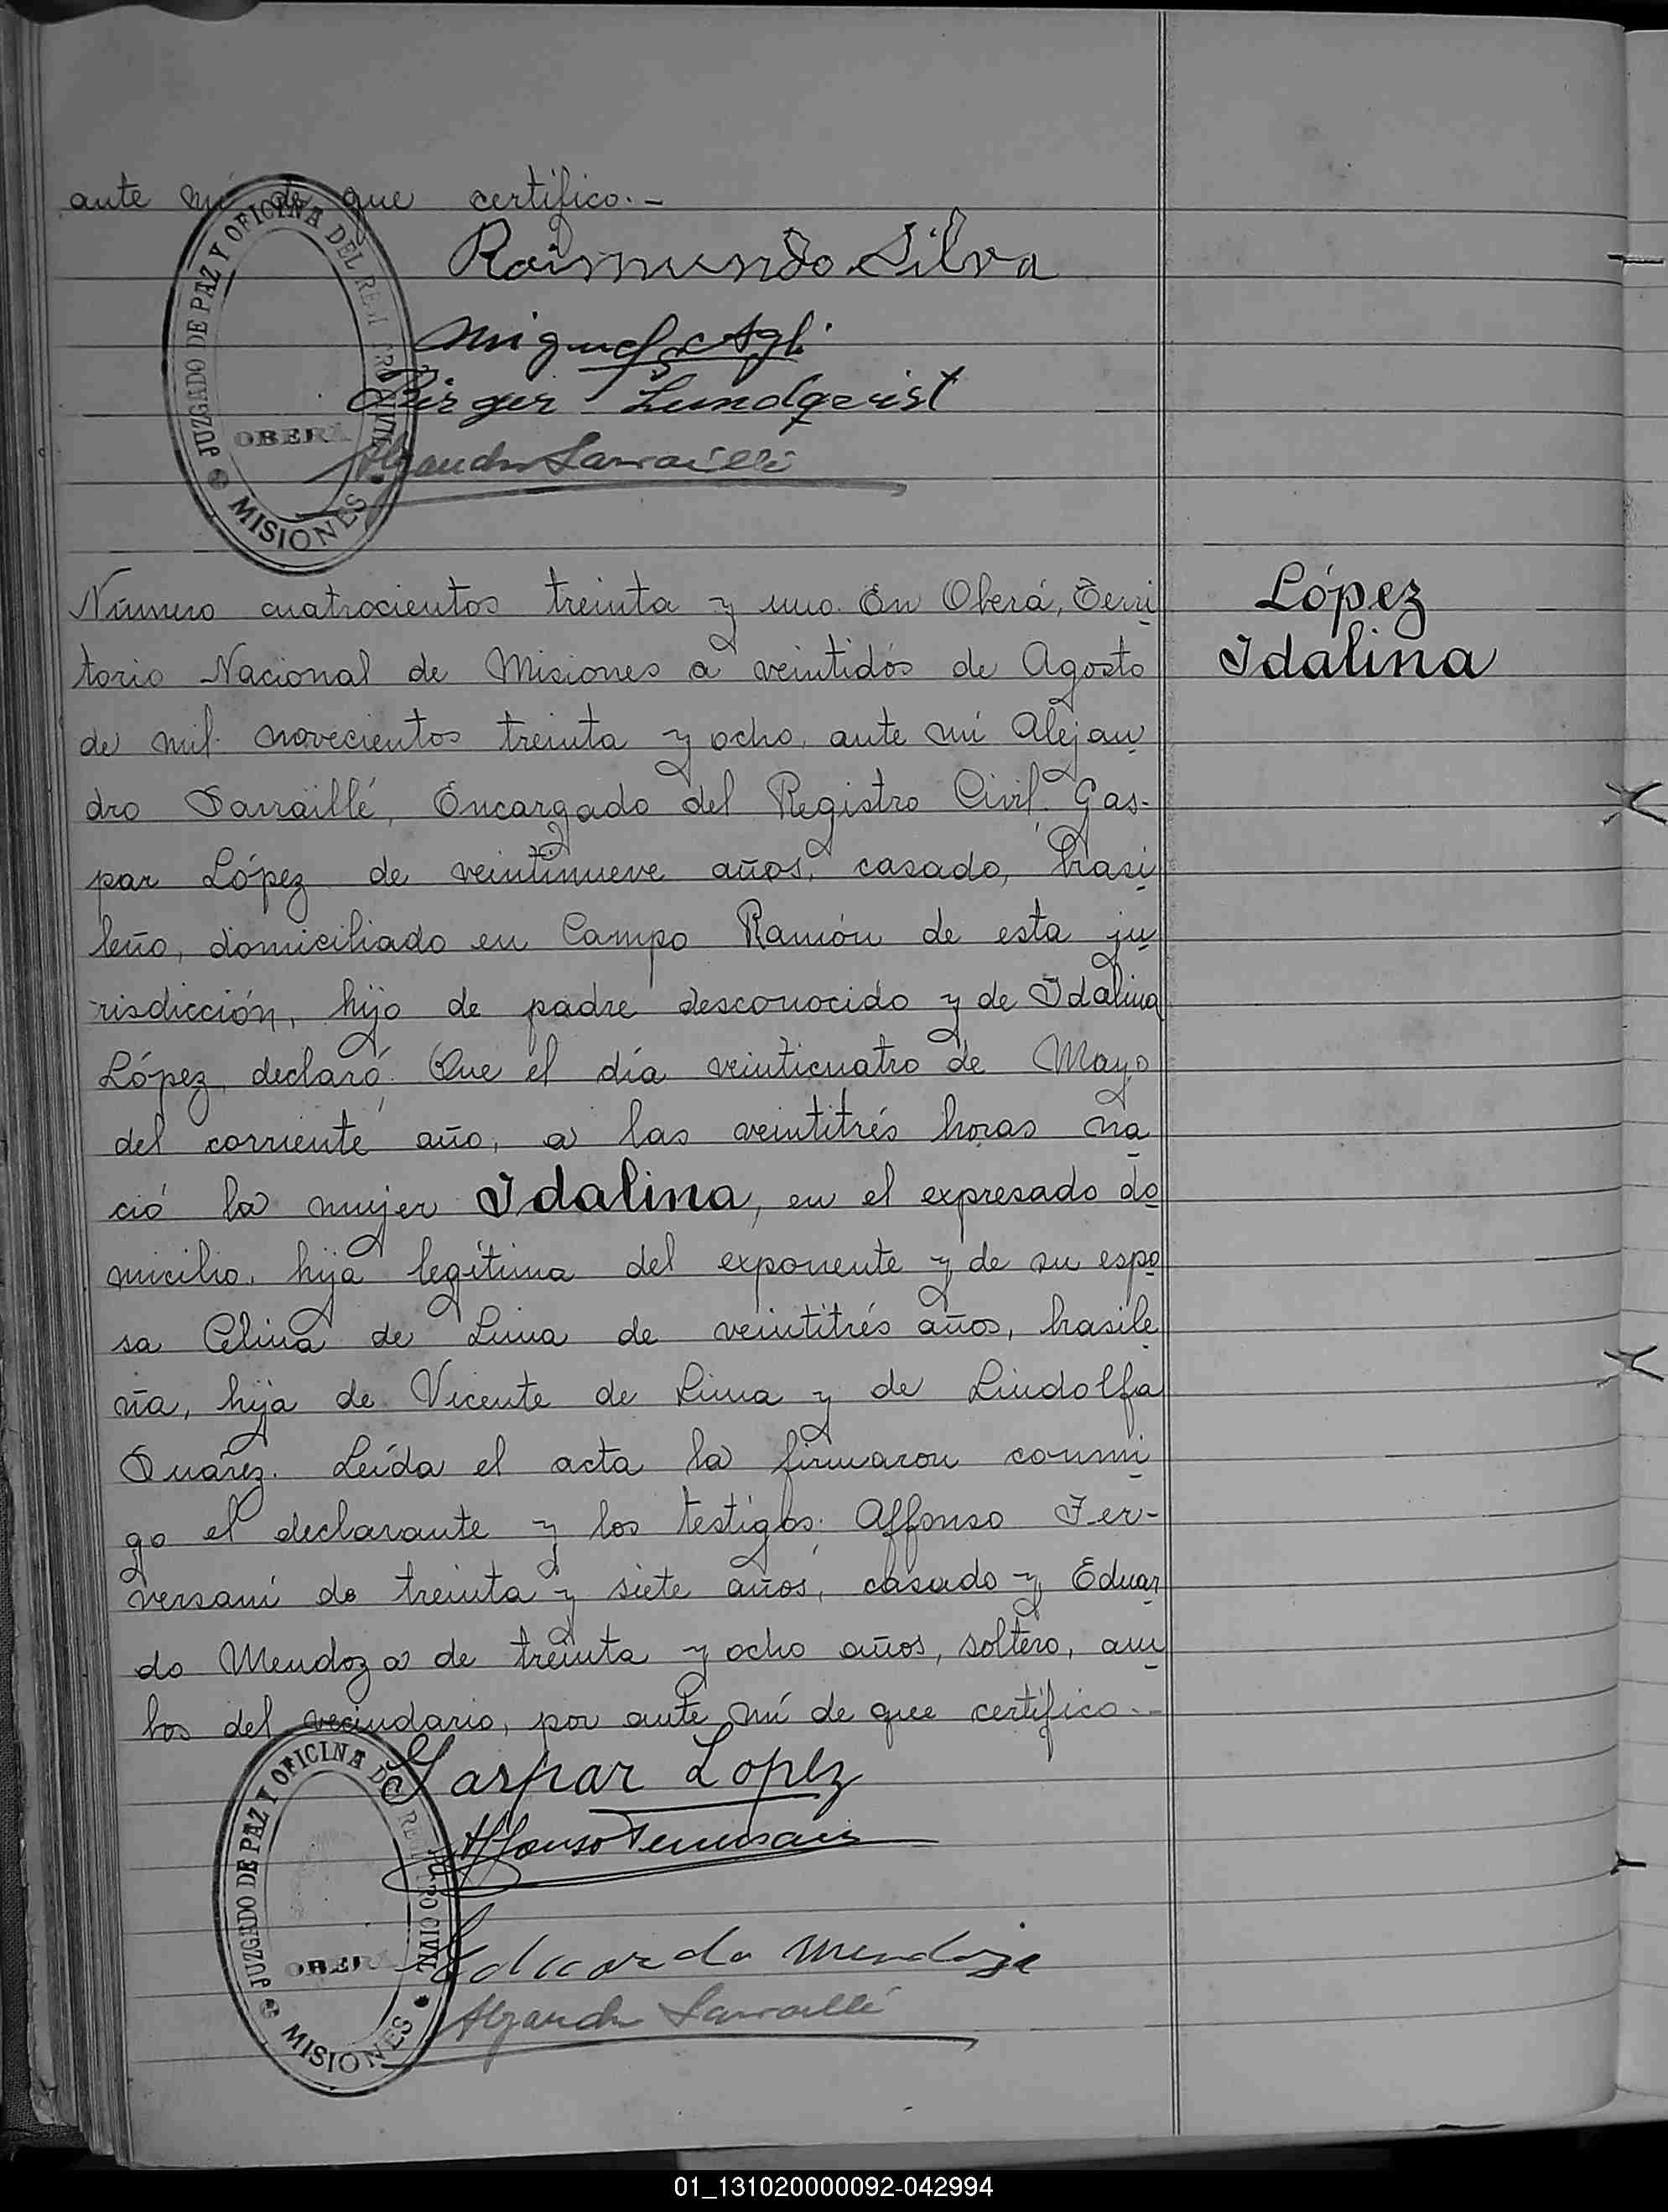 ante mí de que certifico.-
Raimundo Silva
Miguel Agli
Birger Lundqvist
Alejandro Sarraillé
JUZGADO DE PAZ Y OFICINA DEL REGISTRO CIVIL
OBERÁ
MISIONES
López
Idalina
Número cuatrocientos treinta y uno. En Oberá, Terri
torio Nacional de Misiones a veintidós de Agosto
de mil novecientos treinta y ocho, ante mí Alejan
dro Sarraillé, Encargado del Registro Civil, Gas-
par López de veintinueve años, casado, brasi
leño, domiciliado en Campo Ramón de esta ju
risdicción, hijo de padre desconocido y de Idalina
López, declaró: Que el día veinticuatro de Mayo
del corriente año, a las veintitrés horas na
ció la mujer Idalina, en el expresado do
micilio, hija legítima del exponente y de su espo
sa Celina de Lima de veintitrés años, brasile
ña, hija de Vicente de Lima y de Lindolfa
Suárez. Leída el acta la firmaron conmi
go el declarante y los testigos: Affonso Fer-
versani de treinta y siete años, casado y Eduar
do Mendoza de treinta y ocho años, soltero, am
bos del vecindario, por ante mí de que certifico.-
Gaspar Lopez
Affonso
Eduardo Mendoza
Alejandro Sarraillé
JUZGADO DE PAZ Y OFICINA DEL REGISTRO CIVIL
OBERÁ
MISIONES
01_131020000092-042994